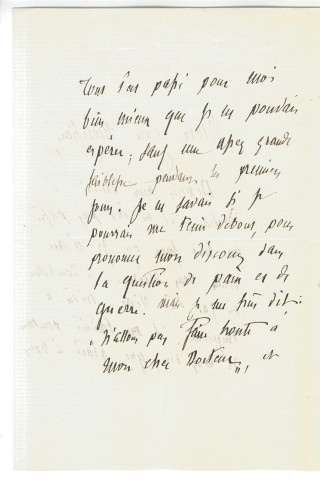 Tout s'est passé pour moi
bien mieux que je ne pouvais
espérer, sauf une assez grande
faiblesse pendant les premiers
jours. Je ne savais si je
pourrais me tenir debout, pour
prononcer mon discours dans
la question de paix et de
guerre. mais je me suis dit :
"N'allons pas faire honte à
mon cher Docteur", et